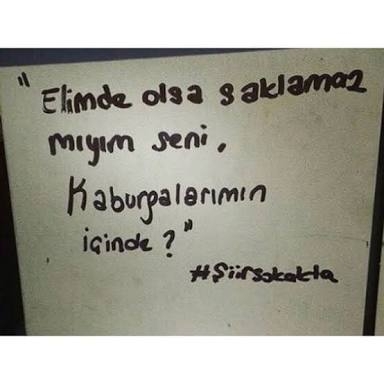 "Elimde olsa saklamaz
mıyım seni,
Kaburgalarımın
içinde?"
#Şiirsokakta